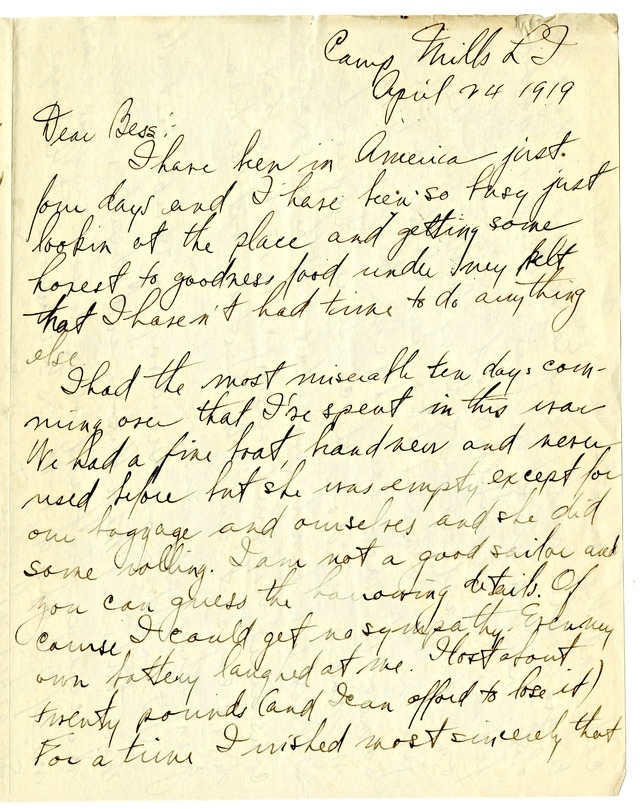 Camp Mills L I
April 24 1919
Dear Bess:-
I have been in America just
four days and I have been so busy just
lookin at the place and getting some
honest to goodness food under my belt
that I haven't had time to do anything
else
I had the most miserable ten days com-
ming over that I've spent in this war
We had a fine boat, brand new and never
used before but she was empty except for
our baggage and ourselves and she did
some rolling. I am not a good sailor and
you can guess the harrowing details. Of
course I could get no sympathy. Even my
own battery laughed at me. I lost about
twenty pounds (and I can afford to lose it)
For a time I wished most sincerely that